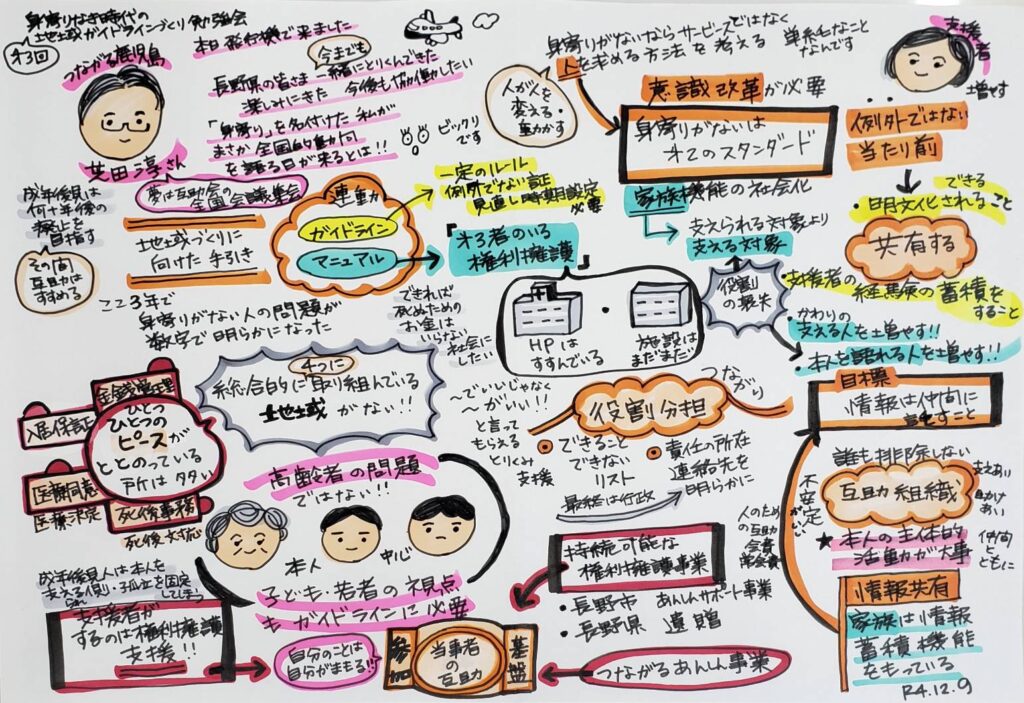 身寄りなき時代の
地域ガイドラインづくり勉強会
第3回
つながる鹿児島
芝田淳さん
本日飛行機で来ました
今までも
長野県の皆さま 一緒にとりくんできた
楽しみにきた 今後も協働したい
「身寄り」を名付けた私が
まさか全国的動向
を語る日が来るとは!!
ビックリ
です
夢は互助会の
全国会議集会
成年後見は
何十年後の
廃止を
目指す
その間
互助は
すすめる
地域づくりに
向けた手引き
連動
ガイドライン
マニュアル
一定のルール
例外でない証
見直し時期設定
必要
「第3者のいる
権利擁護」
HPは
すすんでいる
施設は
まだまだ
身寄りがないならサービスではなく
人を求める方法を考える
単純なこと
なんです
人が人を
変える・
動かす
意識改革が必要
身寄りがないは
第2のスタンダード
家族機能の社会化
支えられる対象より
支える対象
役割
の喪失
支援者
増やす
例外ではない
当たり前
できる
・明文化されること
共有する
・支援者の経験の蓄積を
すること
・かわりの
支える人を増やす!!
・本人を頼れる人を増やす!!
ここ3年で
身寄りがない人の問題が
数字で明らかになった
できれば
死ぬための
お金は
いらない
社会に
したい
4つに
総合的に取り組んでいる
地域がない!!
金銭管理
入居保証
医療同意
医療決定
死後事務
死後対応
ひとつ
ひとつの
ピースが
ととのっている
所は多い
~でいいじゃなく
~がいい!!
と言って
もらえる
とりくみ
支援
つながり
役割分担
できること
できない
リスト
責任の所在
連絡先を
明らかに
最終は行政
目標
情報は仲間に
託すこと
誰も排除しない
互助組織
支えあい
助けあい
不安定
がいい
★本人の主体的
活動が大事
仲間
と
ともに
人のため
の互助
会費
情報共有
家族は情報
蓄積機能
をもっている
R4.12.9
高齢者の問題
ではない!!
本人 中心
子ども・若者の視点
もガイドラインに必要
成年後見人は本人を
支えられる側・孤立を固定
してしまう
支援者が
するのは権利擁護
支援!!
自分のことは
自分がまもる!!
参加
当事者
の
互助
基盤
持続可能な
権利擁護事業
・長野市 あんしんサポート事業
・長野県 遺贈
つながるあんしん事業